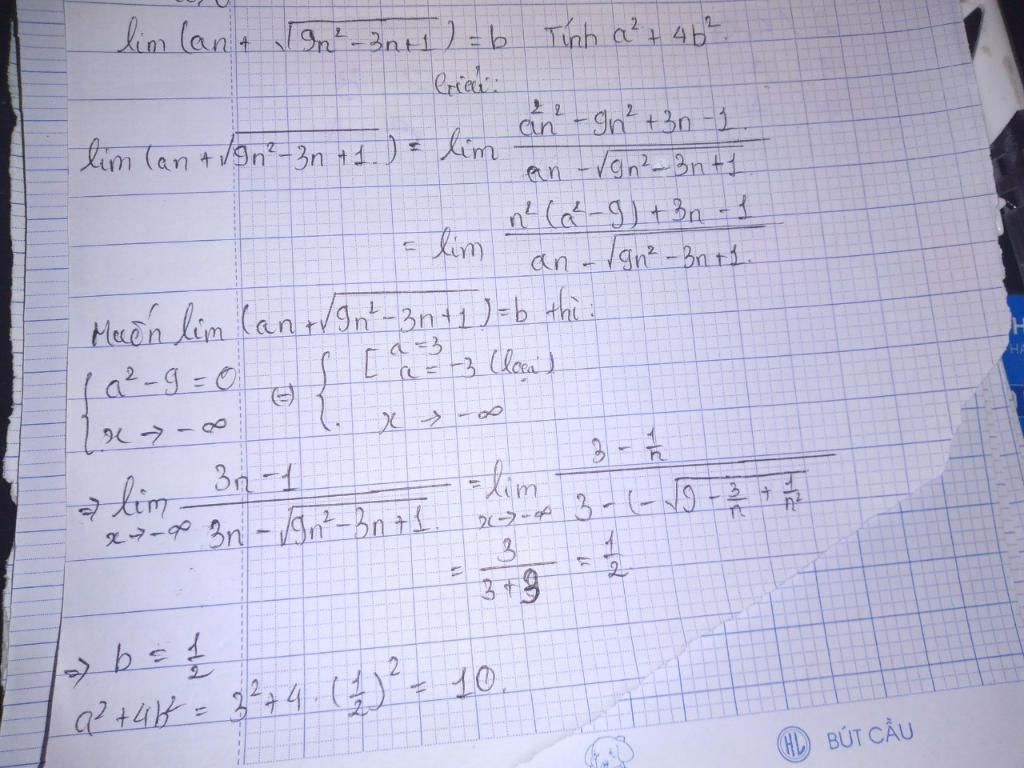 lim (an + √(9n² - 3n + 1)) = b Tính a² + 4b².
Giải:
lim (an + √(9n² - 3n + 1)) = lim (a²n² - 9n² + 3n - 1)/(an - √(9n² - 3n + 1))
= lim (n²(a² - 9) + 3n - 1)/(an - √(9n² - 3n + 1))
Muốn lim (an + √(9n² - 3n + 1)) = b thì:
{ a² - 9 = 0 ⇔ { [ a = 3
a = -3 (loại)
x → -∞ x → -∞
⇒ lim x → -∞ (3n - 1)/(3n - √(9n² - 3n + 1)) = lim x → -∞ (3 - 1/n)/(3 - (-√(9 - 3/n + 1/n²)
= 3/(3 + 9) = 1/2
⇒ b = 1/2
a² + 4b² = 3² + 4 . (1/2)² = 10.
HL BÚT CẦU